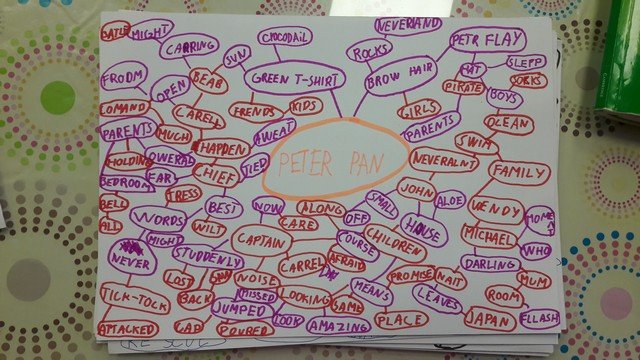 NEVERLAND
CROCODAIL
BATLE
MIGHT
CARRING
SUN
ROCKS
PETR FLAY
FRODM
OPEN
BEAB
GREEN T-SHIRT
BROW HAIR
HAT
SLEPP
PIRATE
SORKS
BOYS
COMAND
CARELL
FRENDS
KIDS
GIRLS
OCEAN
PARENTS
MUCH
HAPDEN
AWEAT
PARENTS
SWIM
HOLDING
OWERAL
CHIEF
TIED
PETER PAN
NEVERALNT
FAMILY
BEDROOM
FAR
TRESS
JOHN
ALOE
BELL
ALL
WORDS
BEST
NOW
ALONG
OFF
SMALL
WENDY
MIGHT
WILT
CARE
HOUSE
MICHAEL
WHO
NEVER
STUDDENLY
CAPTAIN
COURSE
CHILDREN
LOST
NOISE
CARREL
AFRAID
DARLING
PROMISE
NAIT
MUM
TICK-TOCK
BACK
MISSED
LOOKING
MEANS
LEAVES
ROOM
JUMPED
SAME
ATTACKED
GAP
POURED
LOOK
AMAZING
PLACE
JAPAN
FLLASH